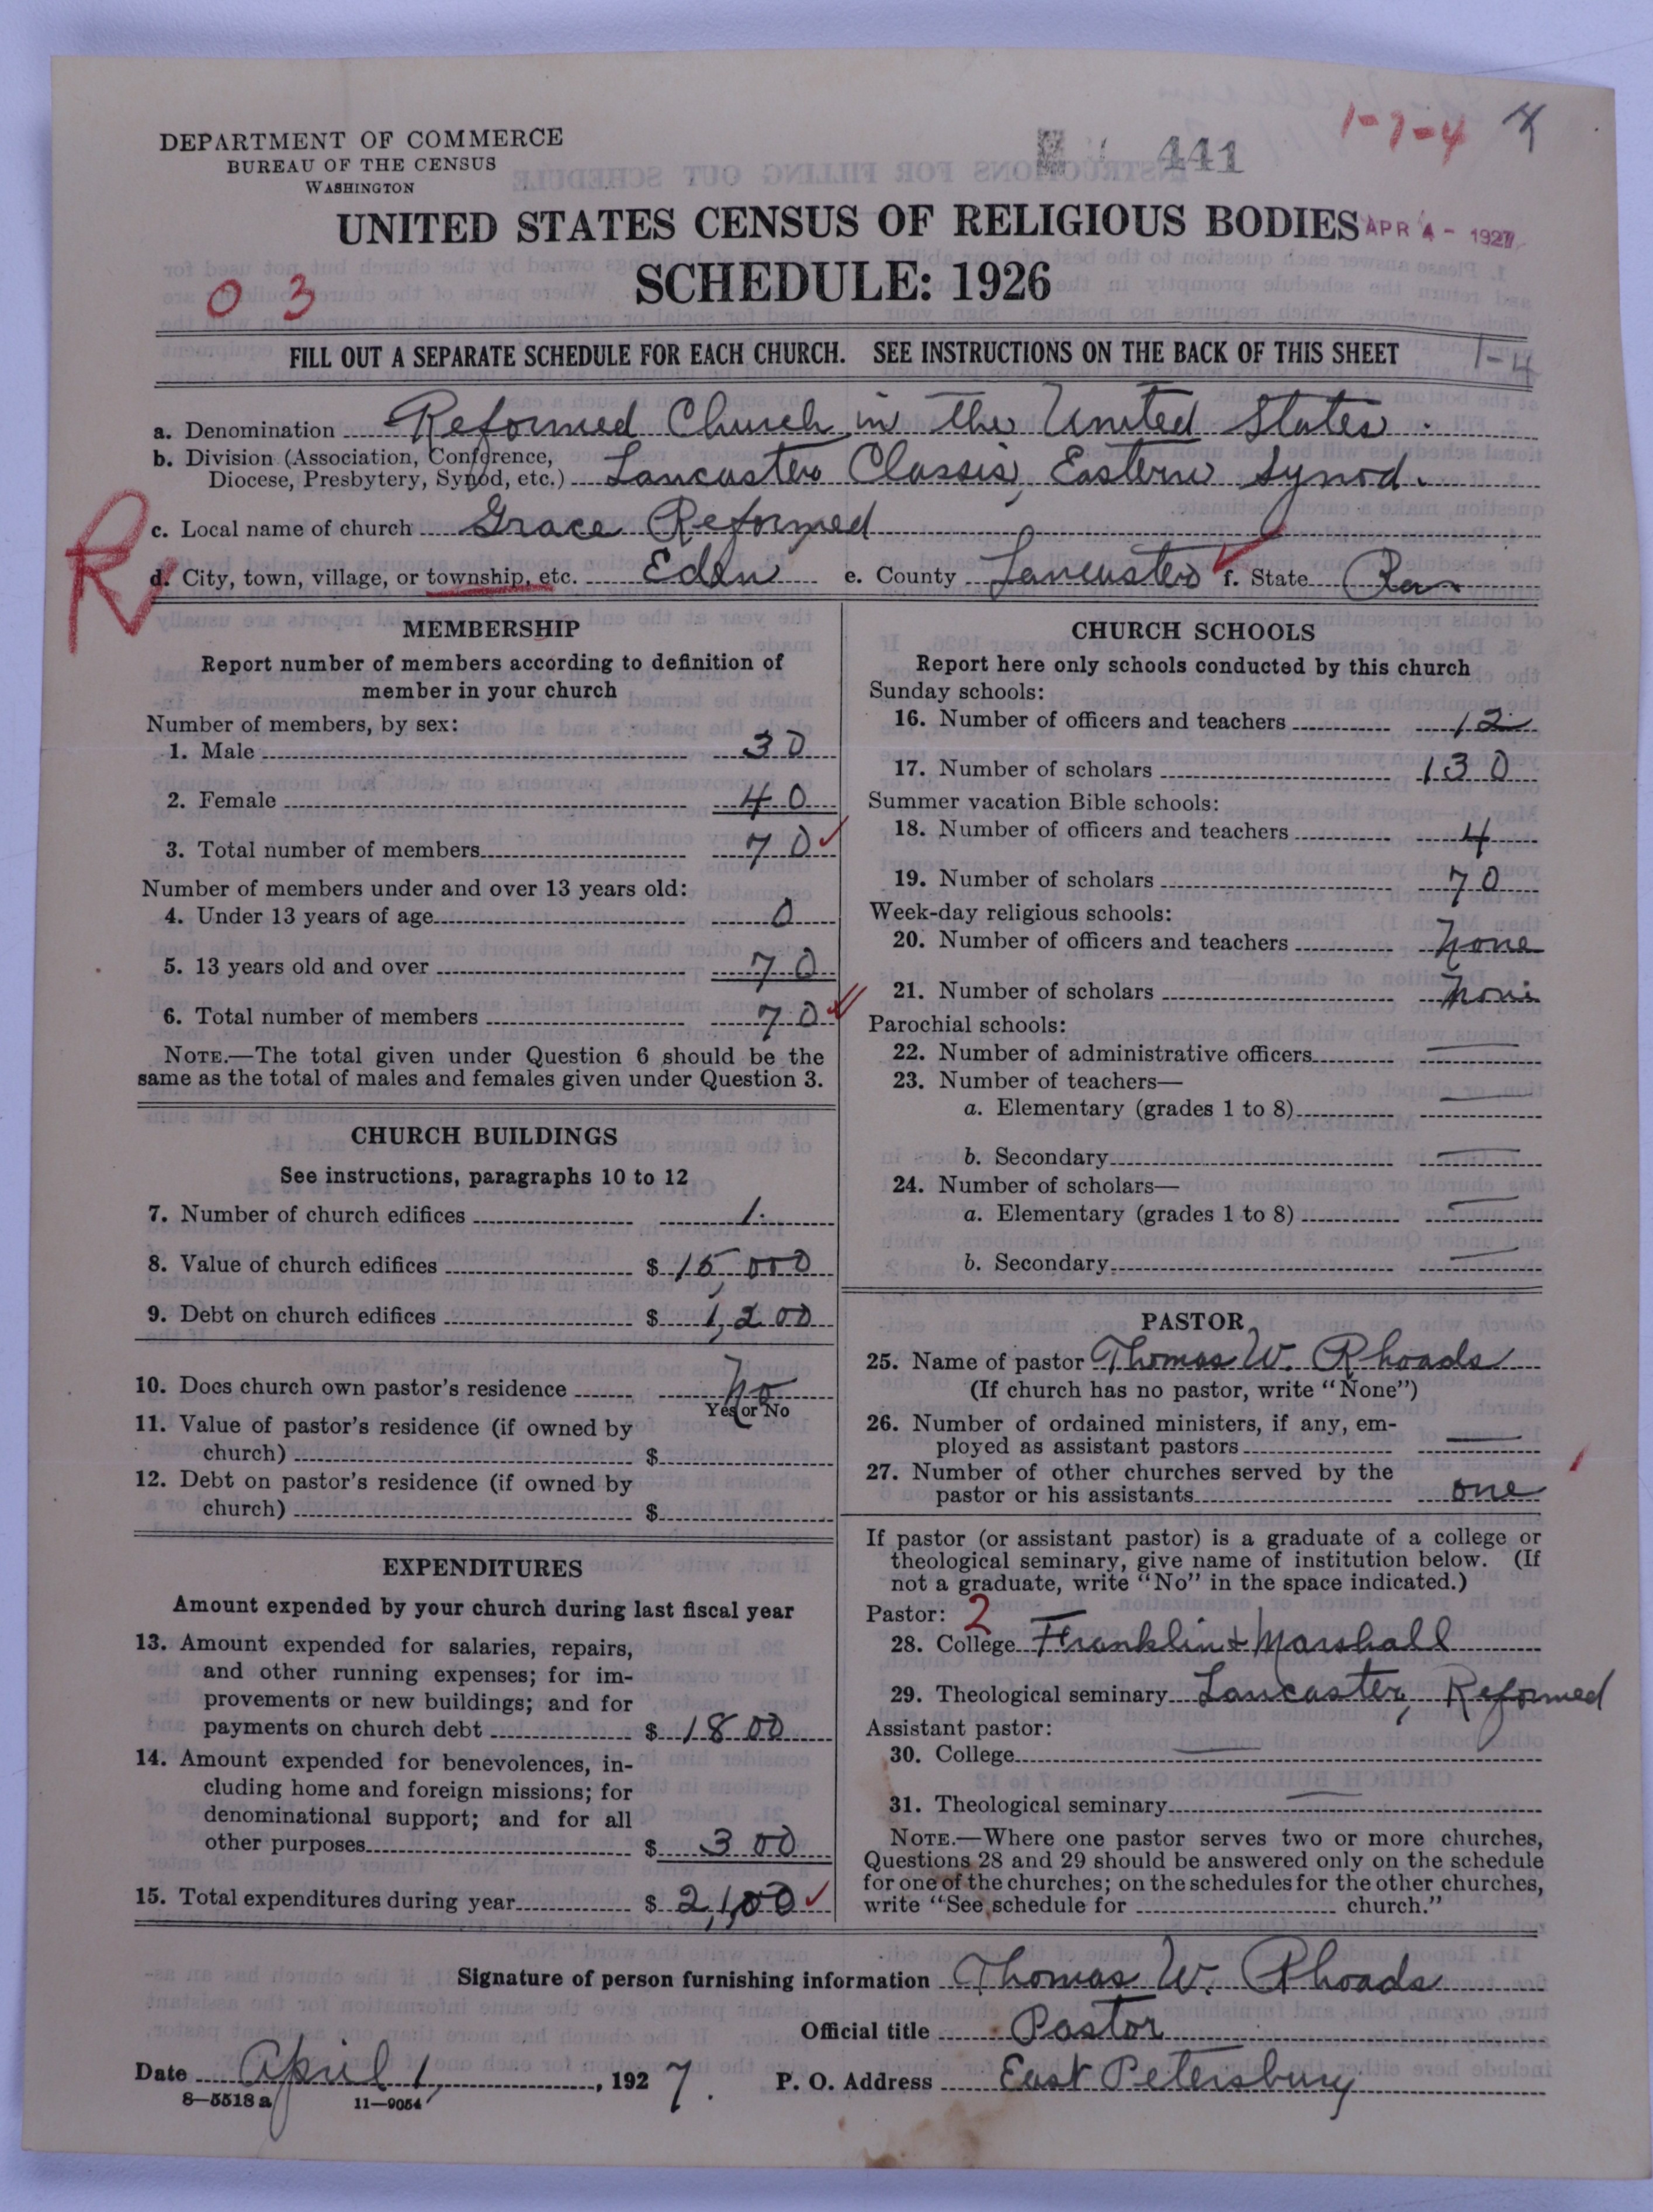 1-7-4 4
DEPARTMENT OF COMMERCE
BUREAU OF THE CENSUS
WASHINGTON
441
UNITED STATES CENSUS OF RELIGIOUS BODIES
APR 4 - 1927
SCHEDULE: 1926
0 3
FILL OUT A SEPARATE SCHEDULE FOR EACH CHURCH. SEE INSTRUCTIONS ON THE BACK OF THIS SHEET
1-4
a. Denomination Reformed Church in the United States.
b. Division (Association, Conference,
Diocese, Presbytery, Synod, etc.) Lancaster Classis, Eastern Synod.
c. Local name of church Grace Reformed
R
d. City, town, village, or township, etc. Eden e. County Lancaster f. State Pa.
MEMBERSHIP
Report number of members according to definition of
member in your church
Number of members, by sex:
1. Male 30
2. Female 40
3. Total number of members 70
Number of members under and over 13 years old:
4. Under 13 years of age 0
5. 13 years old and over 70
6. Total number of members 70
NOTE.—The total given under Question 6 should be the
same as the total of males and females given under Question 3.
CHURCH BUILDINGS
See instructions, paragraphs 10 to 12
7. Number of church edifices 1.
8. Value of church edifices $ 15,000
9. Debt on church edifices $ 1,200
10. Does church own pastor's residence No
Yes or No
11. Value of pastor's residence (if owned by
church) $
12. Debt on pastor's residence (if owned by
church) $
EXPENDITURES
Amount expended by your church during last fiscal year
13. Amount expended for salaries, repairs,
and other running expenses; for im-
provements or new buildings; and for
payments on church debt $ 1800
14. Amount expended for benevolences, in-
cluding home and foreign missions; for
denominational support; and for all
other purposes $ 300
15. Total expenditures during year $ 2,100
CHURCH SCHOOLS
Report here only schools conducted by this church
Sunday schools:
16. Number of officers and teachers 12
17. Number of scholars 130
Summer vacation Bible schools:
18. Number of officers and teachers 4
19. Number of scholars 70
Week-day religious schools:
20. Number of officers and teachers none
21. Number of scholars none
Parochial schools:
22. Number of administrative officers
23. Number of teachers—
a. Elementary (grades 1 to 8)
b. Secondary
24. Number of scholars—
a. Elementary (grades 1 to 8)
b. Secondary
PASTOR
25. Name of pastor Thomas W. Rhoads
(If church has no pastor, write "None")
26. Number of ordained ministers, if any, em-
ployed as assistant pastors
27. Number of other churches served by the
pastor or his assistants one
If pastor (or assistant pastor) is a graduate of a college or
theological seminary, give name of institution below. (If
not a graduate, write "No" in the space indicated.)
Pastor: 2
28. College Franklin & Marshall
29. Theological seminary Lancaster, Reformed
Assistant pastor:
30. College
31. Theological seminary
NOTE.—Where one pastor serves two or more churches,
Questions 28 and 29 should be answered only on the schedule
for one of the churches; on the schedules for the other churches,
write "See schedule for church."
Signature of person furnishing information Thomas W. Rhoads
Official title Pastor
Date April 1, 1927. P. O. Address East Petersburg
8—5518 a 11—9054